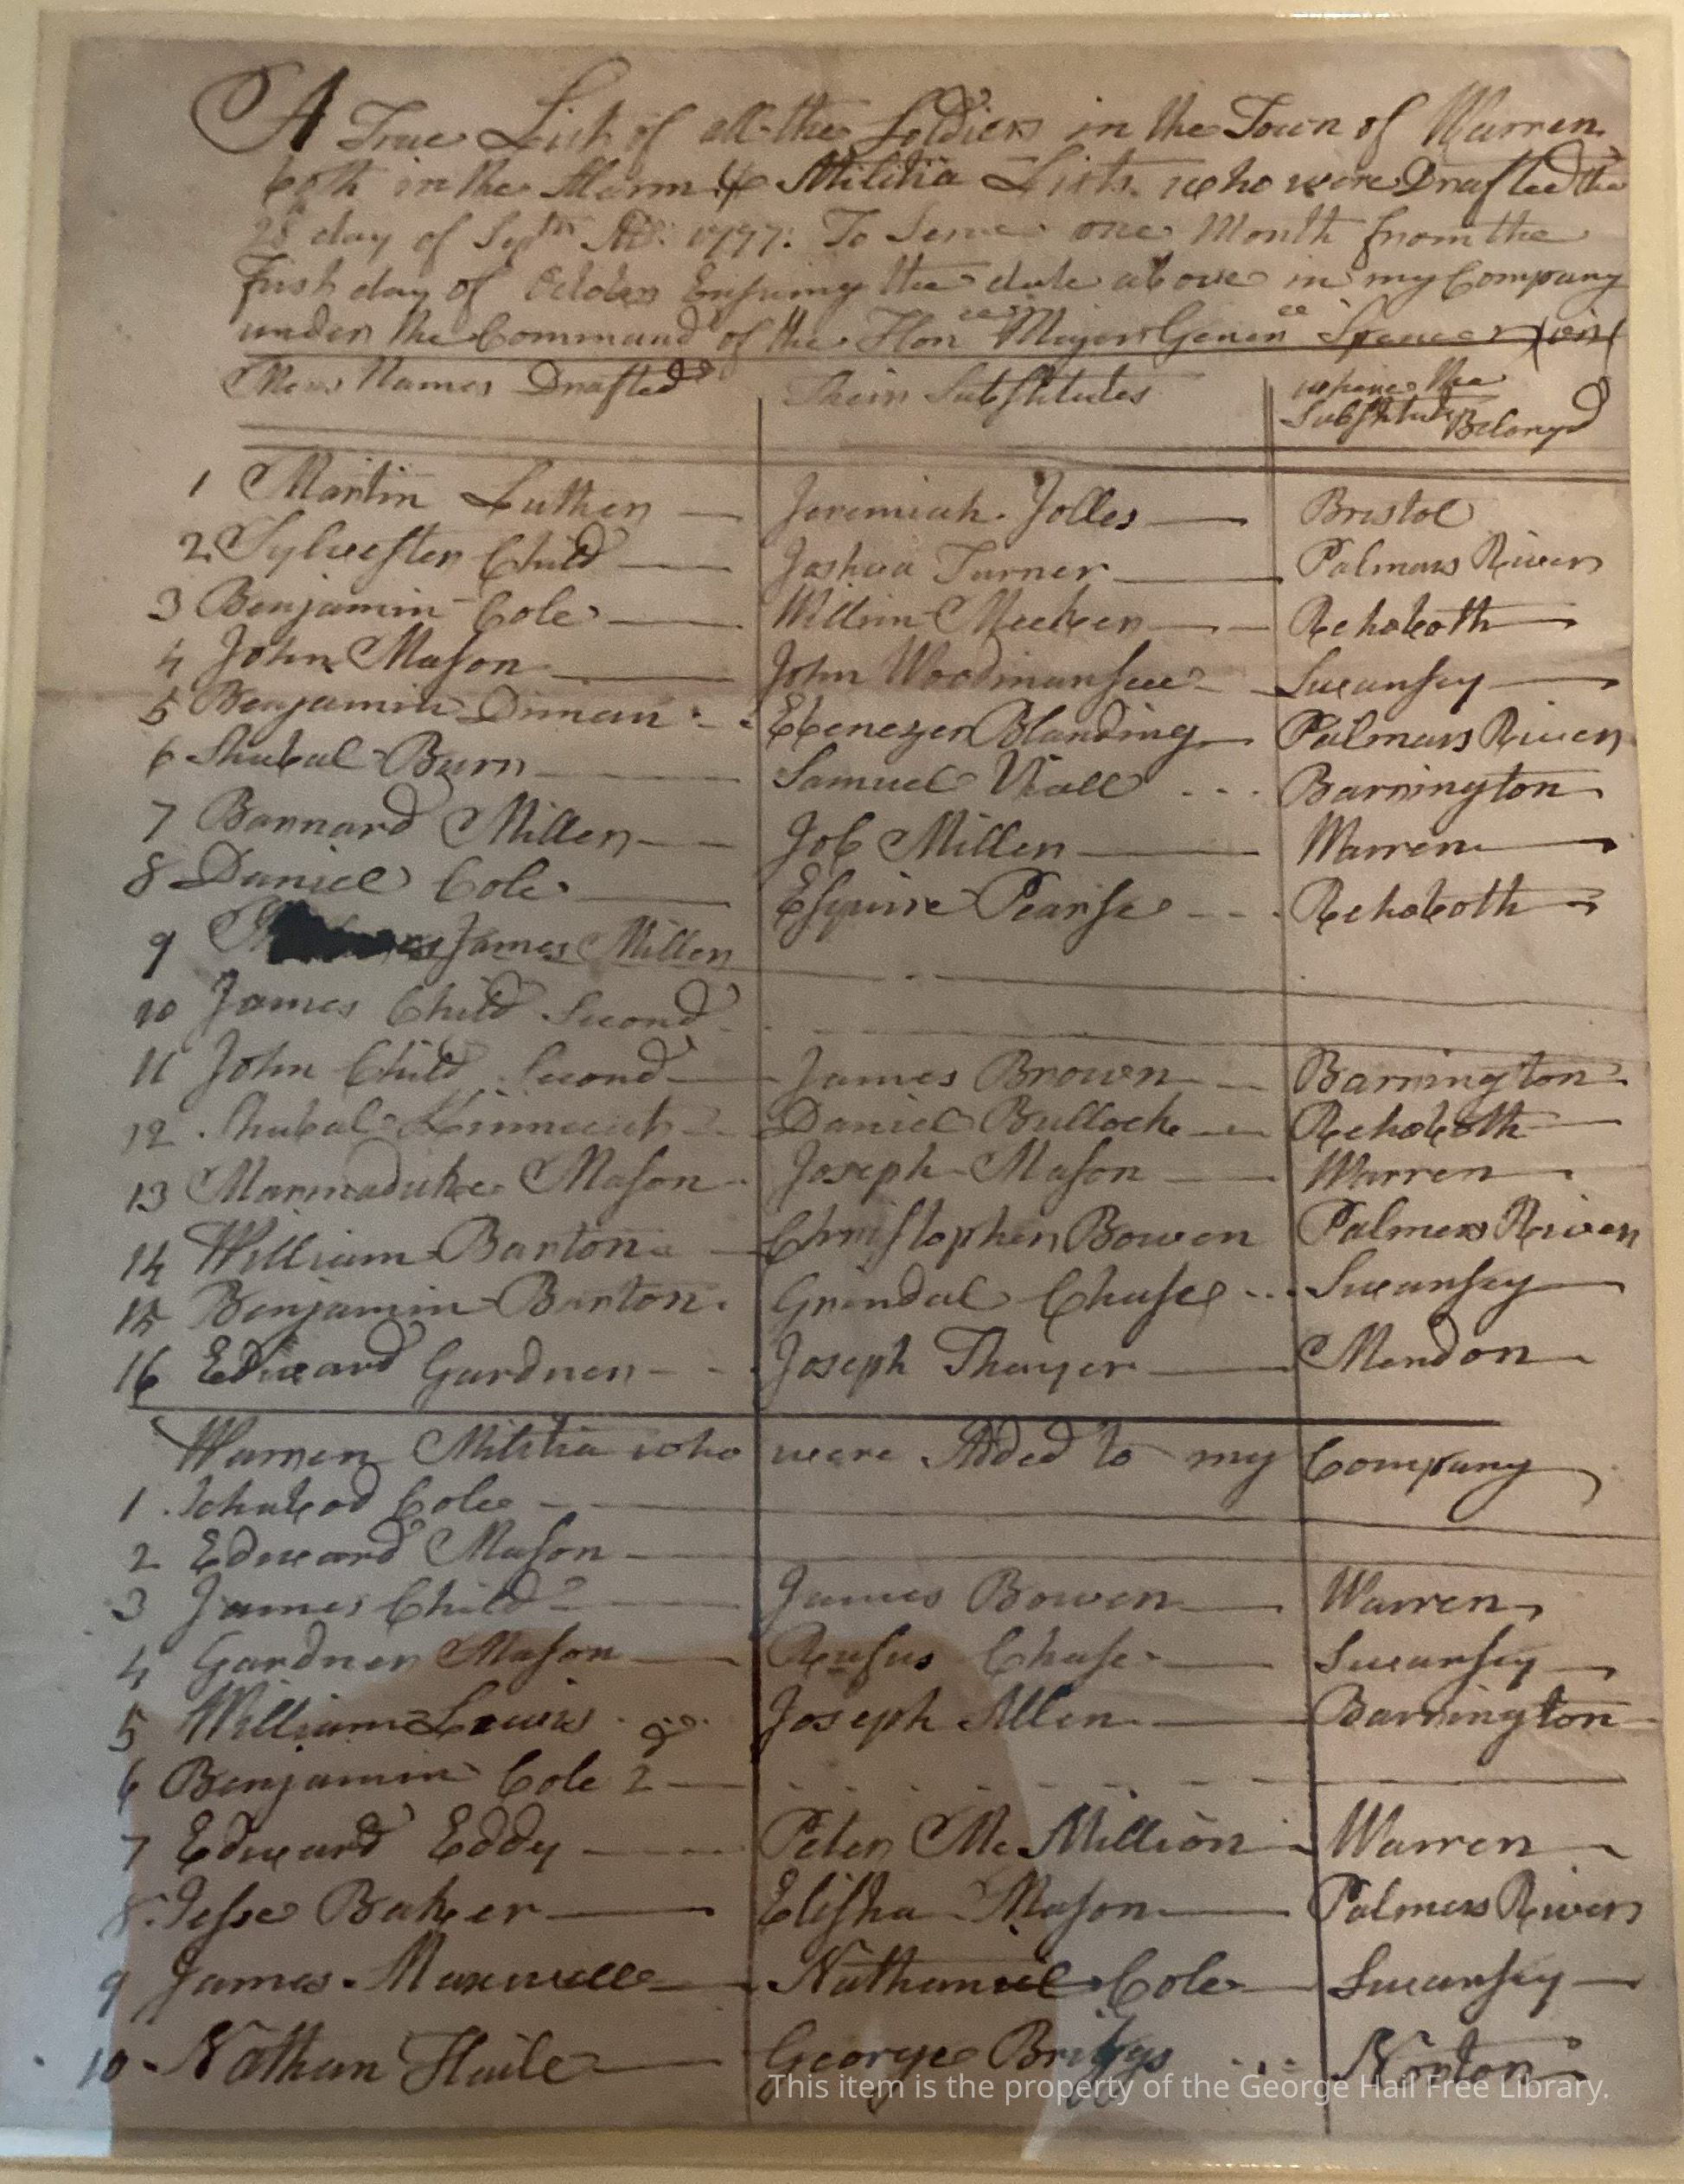 A True List of all the Soldiers in the Town of Warren
both in the Alarm & Militia Lists who were Drafted the
28 day of Septm AD: 1777: To Serve one Month from the
First day of October Ensuing the date above in my Company
under the Command of the Honee Major Genen Spencer (viz)
Mens Names Drafted Their Substitutes where the Substitutes Belongd
1 Martin Luther — Jeremiah Jolles — Bristol
2 Sylvester Child — Joshua Turner — Palmars River
3 Benjamin Cole — Meeken — Rehoboth
4 John Mason — John Woodmansee Swansey —
5 Benjamin Diman Ebenezer Blanding Palmars River
6 Shubal Burn — Samuel Viall Barrington
7 Barnard Miller — Job Miller — Warren
8 Daniel Cole — Esquire Pearse Rehoboth
9 James Miller
10 James Child Second
11 John Child Second — James Brown Barrington
12 Shubal Kinnecut Daniel Bullock Rehoboth
13 Marmaduke Mason Joseph Mason — Warren
14 William Barton Christopher Bowen Palmers River
15 Benjamin Barton Grindal Chase Swansey
16 Edward Gardner Joseph Thayer — Mendon
Warren Militia who were Added to my Company
1 Ichabod Cole
2 Edward Mason —
3 James Child — James Bowen — Warren
4 Gardner Mason — Rufus Chase — Swansey
5 William Lewis Joseph Allen — Barrington
6 Benjamin Cole 2d
7 Edward Eddy — Peter McMillion Warren
8 Jesse Baker — Elisha Mason — Palmers River
9 James Maxwell — Nathaniel Cole — Swansey
10 Nathan Haile — George Briggs Norton
This item is the property of the George Hail Free Library.